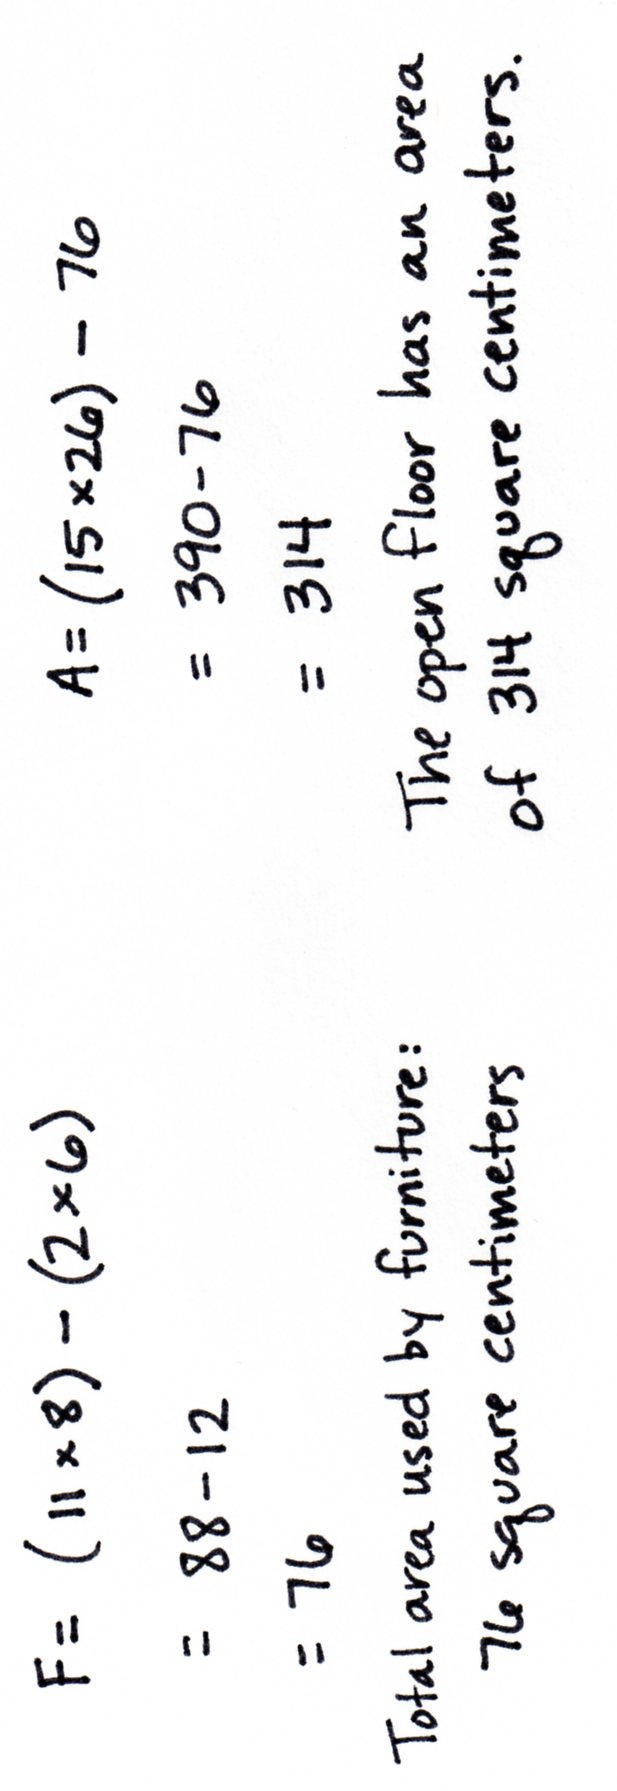 F = (11 × 8) − (2 × 6)
= 88 − 12
= 76
Total area used by furniture:
76 square centimeters
A = (15 × 26) − 76
= 390 − 76
= 314
The open floor has an area
of 314 square centimeters.